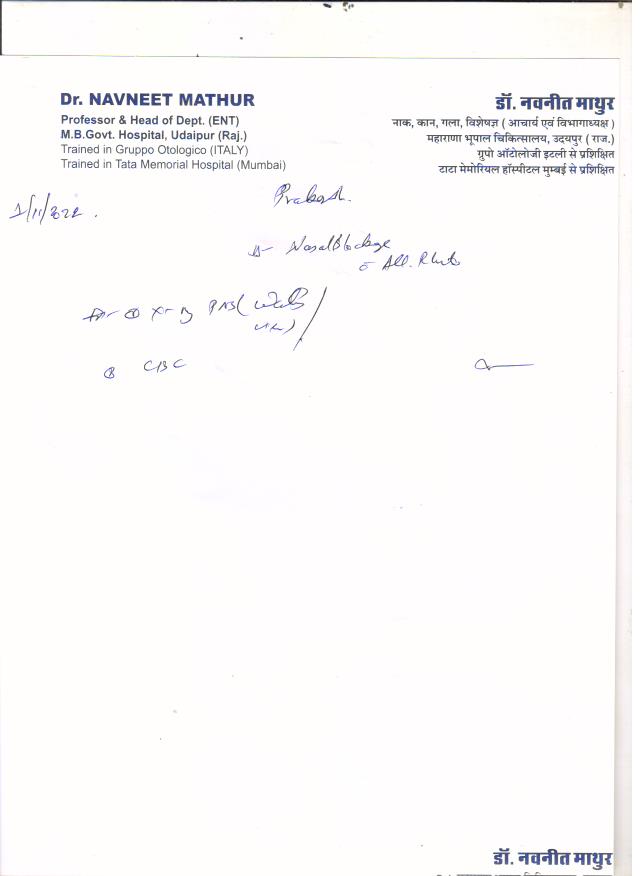 Dr. NAVNEET MATHUR
Professor & Head of Dept. (ENT)
M.B.Govt. Hospital, Udaipur (Raj.)
Trained in Gruppo Otologico (ITALY)
Trained in Tata Memorial Hospital (Mumbai)
डॉ. नवनीत माथुर
नाक, कान, गला, विशेषज्ञ ( आचार्य एवं विभागाध्यक्ष )
महाराणा भूपाल चिकित्सालय, उदयपुर ( राज.)
ग्रुपो ऑटोलोजी इटली से प्रशिक्षित
टाटा मेमोरियल हॉस्पीटल मुम्बई से प्रशिक्षित
Prakash.
1/11/2022.
Nasal Blockage
All. Rhinitis
X-ray PNS (
CBC
डॉ. नवनीत माथुर